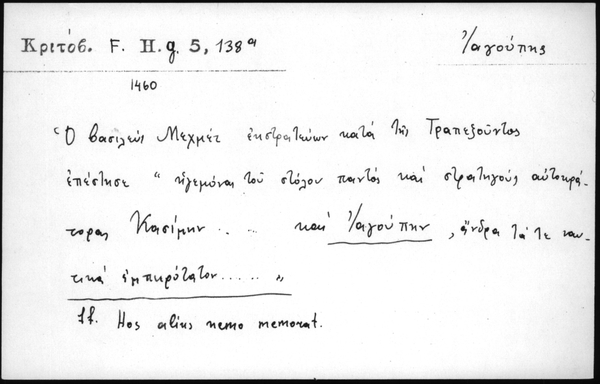 Κριτόβ. F. H. g. 5, 138ª Ἰαγούπης
1460
Ὁ βασιλεὺς Μεχμὲτ ἐκστρατεύων κατὰ τῆς Τραπεζοῦντος
ἐπέστησε " ἡγεμόνας τοῦ στόλου παντὸς καὶ στρατηγοὺς αὐτοκρά-
τορας Κασίμην . . . καὶ Ἰαγούπην, ἄνδρα τά τε ναυ-
τικὰ ἐμπειρότατον ..... "
Hos alius nemo memorat.